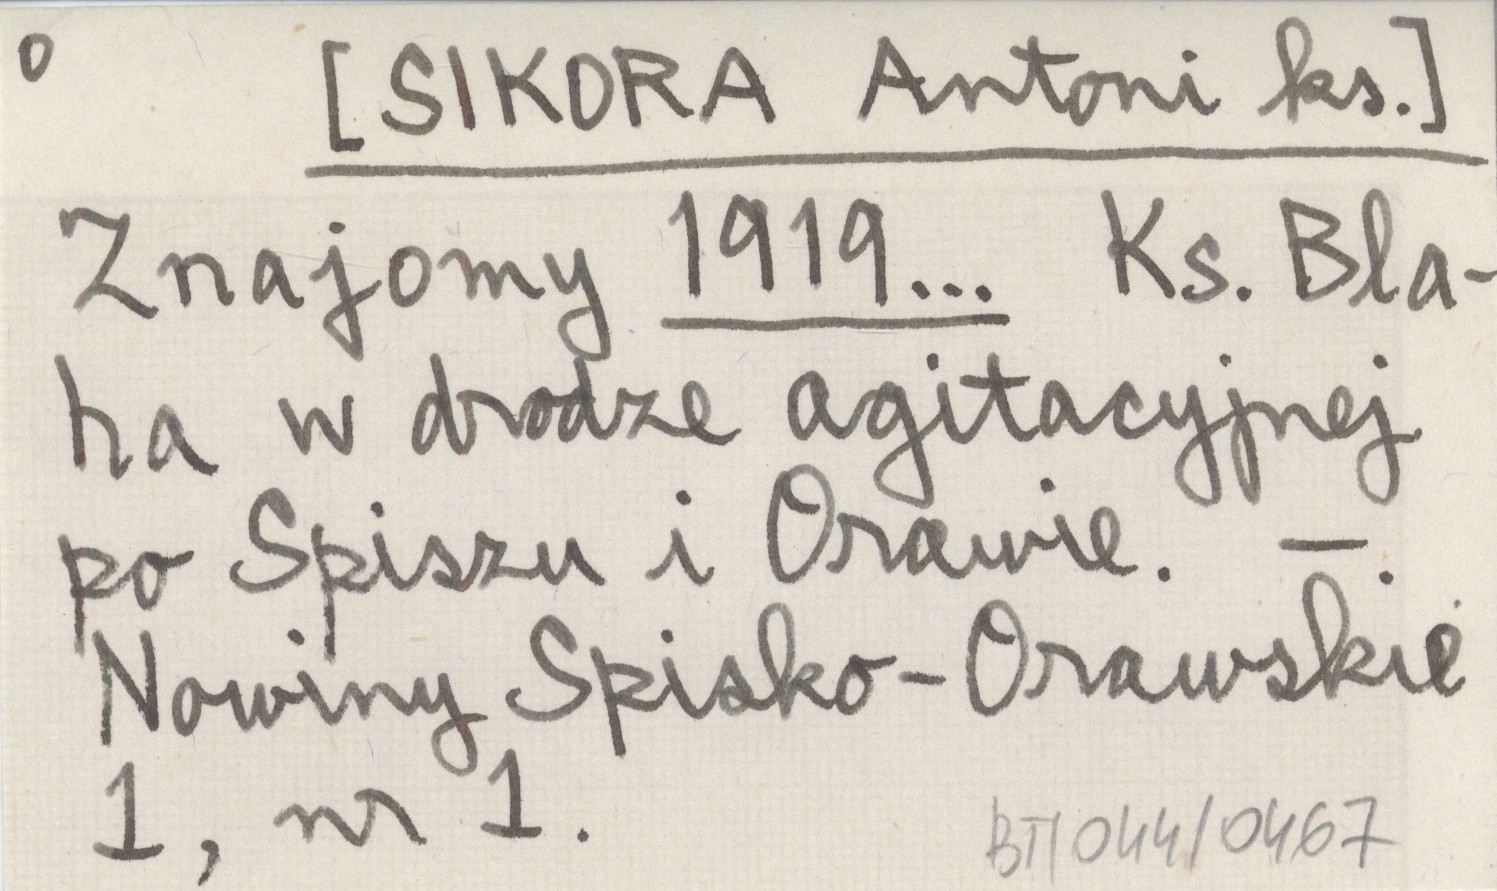 o [SIKORA Antoni ks.]
Znajomy 1919... Ks. Bla-
ha w drodze agitacyjnej
po Spiszu i Orawie. —.
Nowiny Spisko-Orawskie
1, nr 1.
BT/044/0467